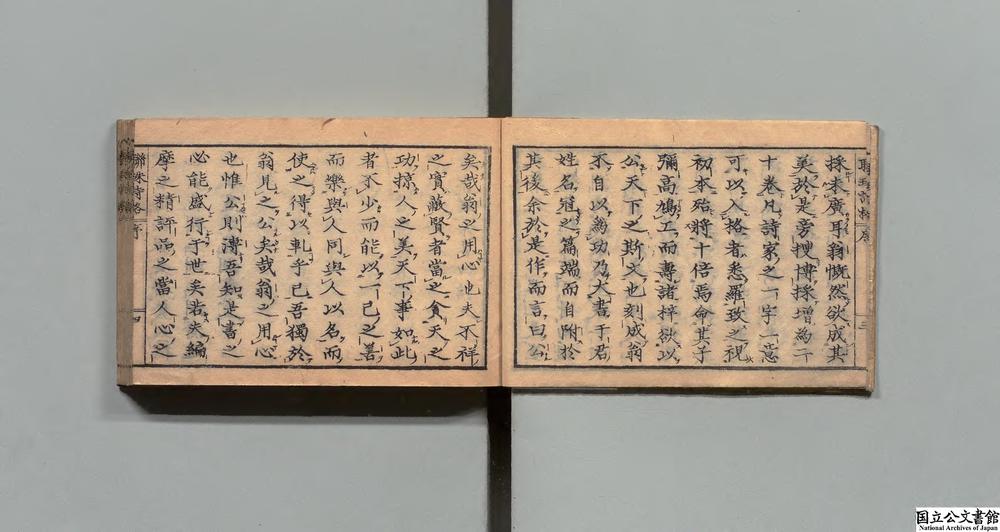 採未廣耳翁慨然欲成其
美於是旁搜博採增為二
十卷凡詩家之一字一意
可以入格者悉羅致之視
初本殆將十倍焉命其子
彌高鳩工而壽諸梓欲以
公天下之斯文也刻成翁
不自以為功乃大書于君
姓名冠之篇端而自附於
其後余於是作而言曰公
矣哉翁之用心也夫不祥
之實蔽賢者當之貪天之
功掠人之美天下事如此
者不少而能以一己之善
而樂與人同與人以名而
使之得以軋乎己吾獨於
翁見之公矣哉翁之用心
也惟公則溥吾知是書之
必能盛行于世矣若夫編
摩之精評品之當人心之
聯珠詩格 序 四
国立公文書館
National Archives of Japan